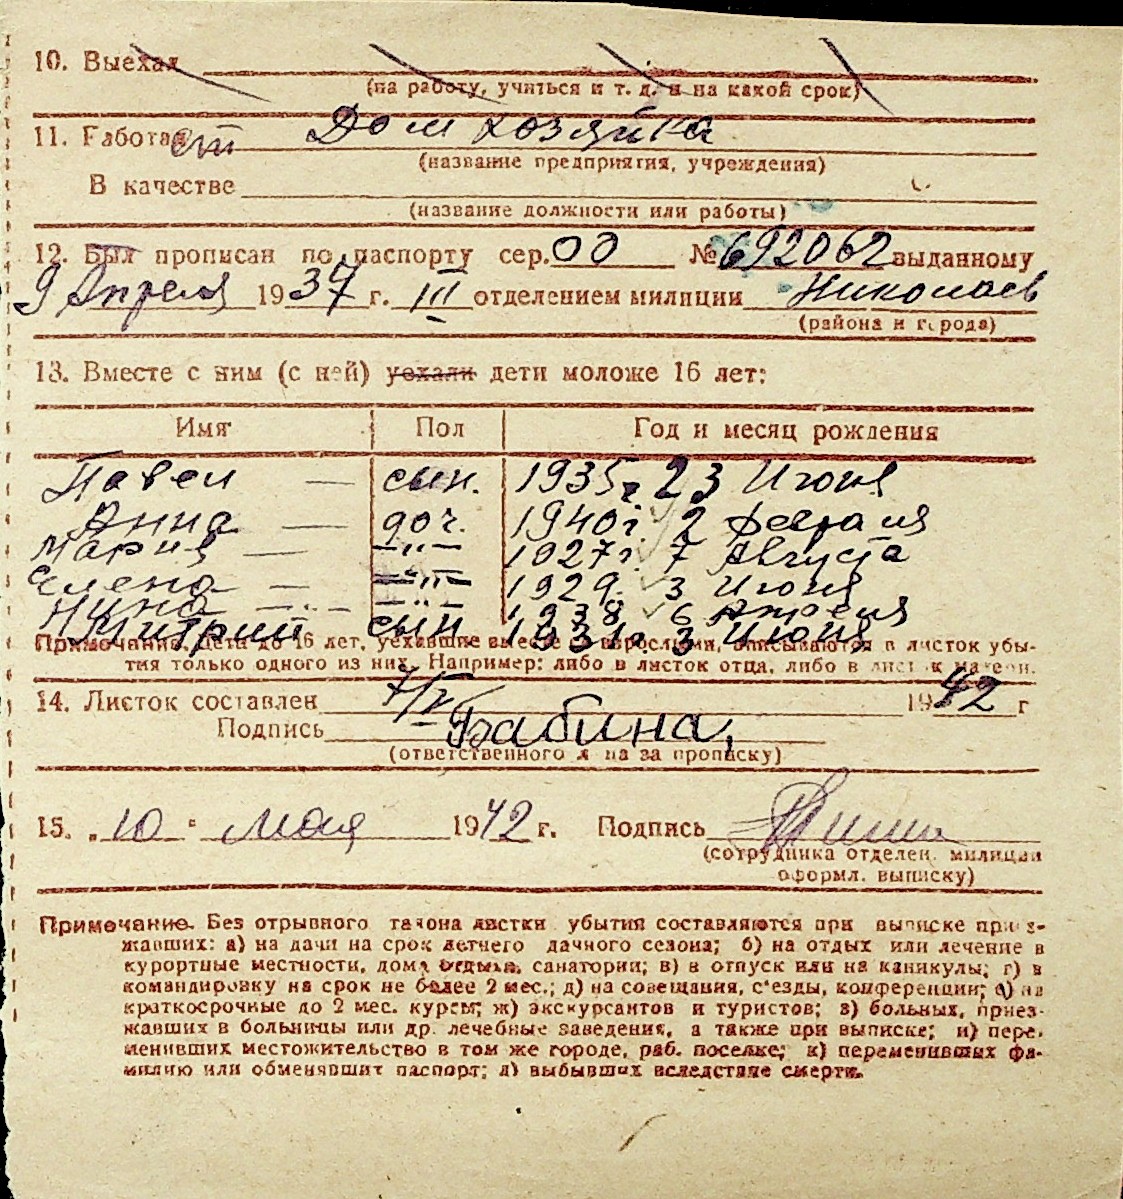 10. Выехал
(на работу, учиться и т. д. и на какой срок)
11. Работает Дом хозяйка
(название предприятия, учреждения)
В качестве
(название должности или работы)
12. Был прописан по паспорту сер. 00 № 692062 выданному
9 Апреля 1937 г. III отделением милиции Николаев
(района и города)
13. Вместе с ним (с ней) уехали дети моложе 16 лет:
Имя Пол Год и месяц рождения
Павел — сын. 1935г. 23 Июня
Анна — доч. 1940г. 2 февраля
Мария — —"— 1927г. 7 Августа
Елена — —"— 1929. 3 Июня
Нина — —"— 1938 6 Апреля
Дмитрий сын 1931г. 3 Июня
Примечание. Дети до 16 лет, уехавшие вместе со взрослыми, вписываются в листок убы-
тия только одного из них. Например: либо в листок отца, либо в листок матери.
14. Листок составлен 7/V 1942 г
Подпись Бабина,
(ответственного лица за прописку)
15. „10" мая 1942 г. Подпись
(сотрудника отделен. милиции
оформл. выписку)
Примечание. Без отрывного талона листки убытия составляются при выписке приез-
жавших: а) на дачи на срок летнего дачного сезона; б) на отдых или лечение в
курортные местности, дома отдыха, санатории; в) в отпуск или на каникулы; г) в
командировку на срок не более 2 мес.; д) на совещания, с'езды, конференции; е) на
краткосрочные до 2 мес. курсы; ж) экскурсантов и туристов; з) больных, приез-
жавших в больницы или др. лечебные заведения, а также при выписке; и) пере-
менивших местожительство в том же городе, раб. поселке; к) переменивших фа-
милию или обменявших паспорт; л) выбывших вследствие смерти.